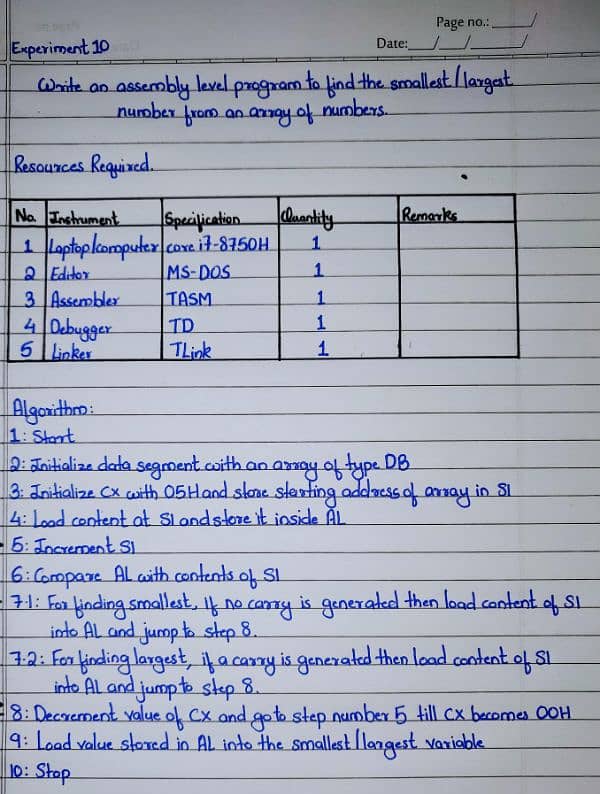 Page no.:
Date:
Experiment 10
Write an assembly level program to find the smallest / largest
number from an array of numbers.
Resources Required.
No. Instrument Specification Quantity Remarks
1 Laptop/computer core i7-8750H 1
2 Editor MS-DOS 1
3 Assembler TASM 1
4 Debugger TD 1
5 Linker TLink 1
Algorithm:
1: Start
2: Initialize data segment with an array of type DB
3: Initialize CX with 05H and store starting address of array in SI
4: Load content at SI and store it inside AL
5: Increment SI
6: Compare AL with contents of SI
7.1: For finding smallest, If no carry is generated then load content of SI
into AL and jump to step 8.
7.2: For finding largest, if a carry is generated then load content of SI
into AL and jump to step 8.
8: Decrement value of CX and go to step number 5 till CX becomes 00H
9: Load value stored in AL into the smallest / largest variable
10: Stop